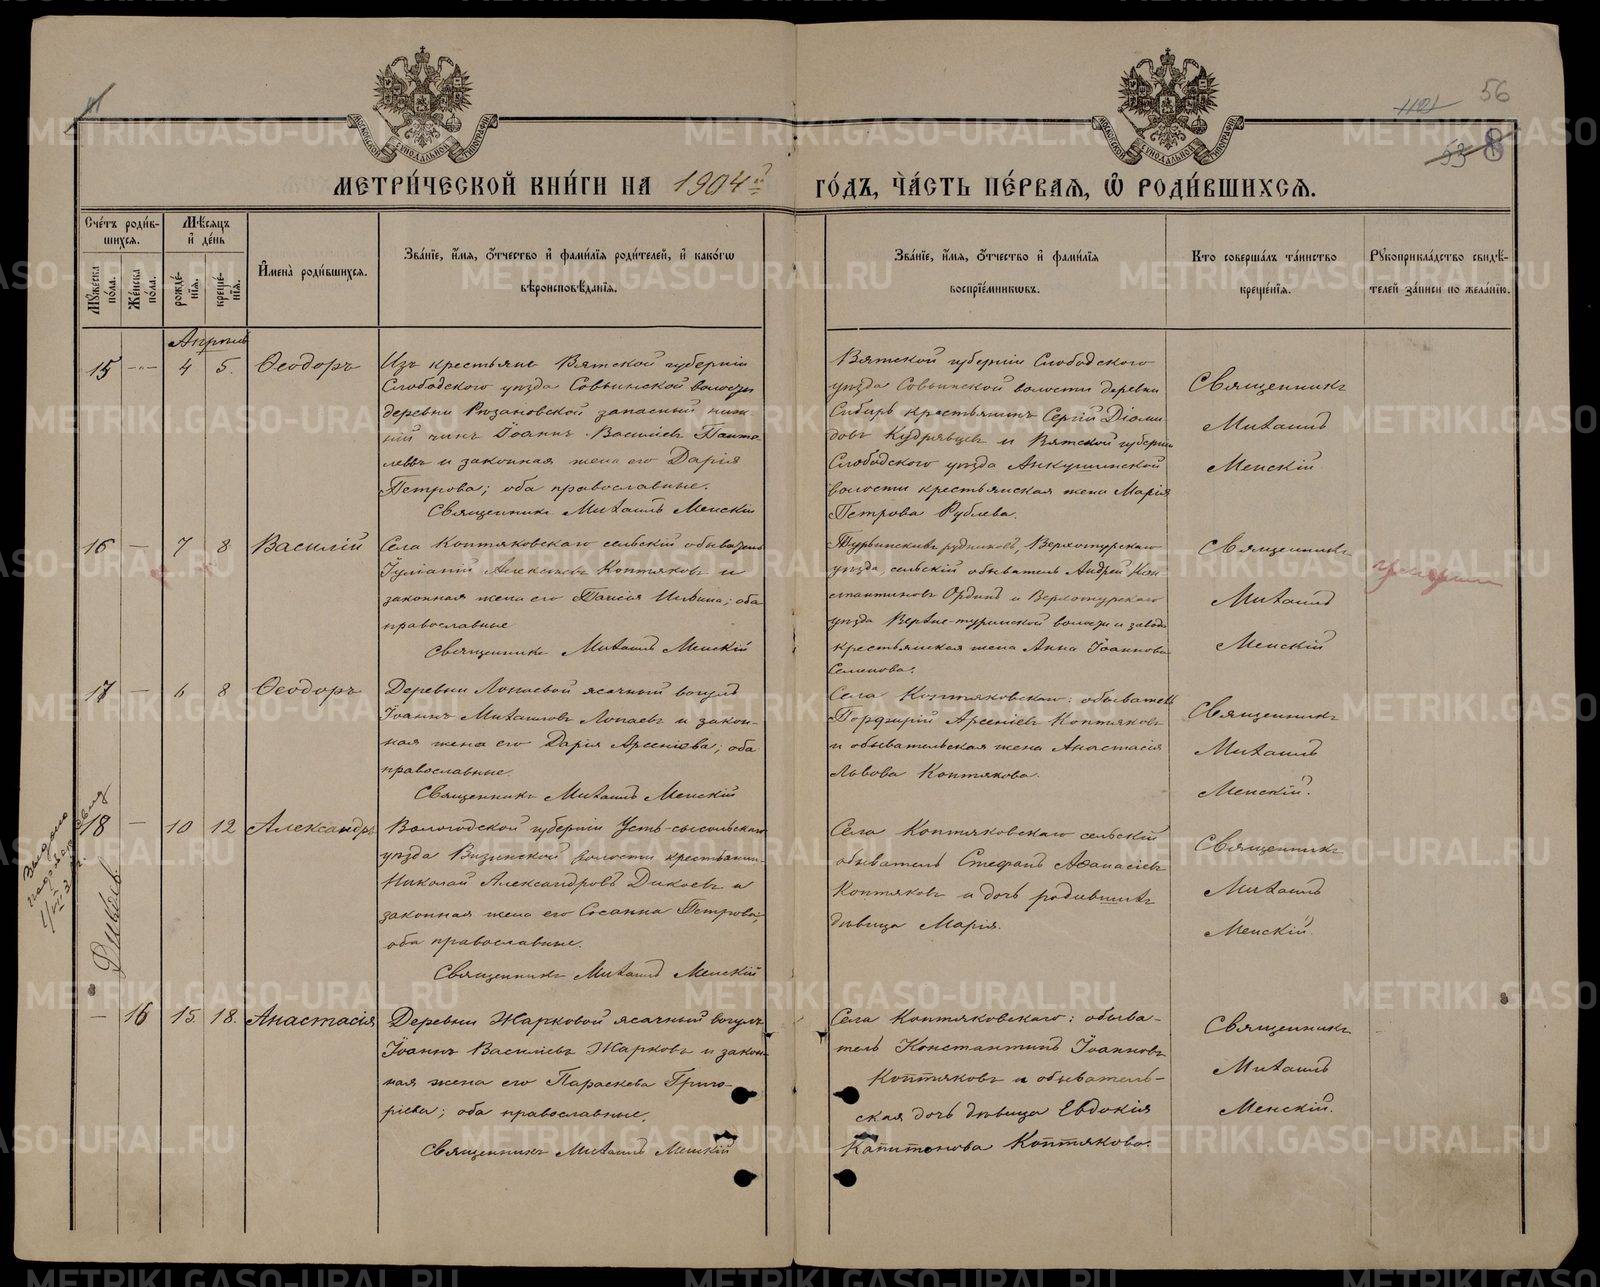 56
1121
53 8
МЕТРИ́ЧЕСКОЙ КНИ́ГИ НА 1904й ГО́ДЪ, ЧА́СТЬ ПЕ́РВАЯ, Ѿ РОДИ́ВШИХСЯ.
Сче́тъ роди́вшихся.
Мꙋ́жеска по́ла.
Же́нска по́ла.
Мѣ́сяцъ и҆ де́нь
рожде́нїя.
креще́нїя.
И҆мена̀ роди́вшихся.
Зва́нїе, и҆́мя, о҆́тчество и҆ фами́лїя роди́телей, и҆ како́гѡ вѣроисповѣ́данїя.
Зва́нїе, и҆́мя, о҆́тчество и҆ фами́лїя воспрїе́мниковъ.
Кто соверша́лъ та́инство креще́нїя.
Рꙋкоприкла́дство свидѣ́телей за́писи по жела́нїю.
Апрѣль
15 — 4 5. Ѳеодоръ
Изъ крестьянъ Вятской губерніи
Слободского уѣзда Совьинской волости
деревни Рязановской запасный ниж-
ній чинъ Іоаннъ Василіевъ Панте-
леевъ и законная жена его Дарія
Петрова; оба православные.
Священникъ Михаилъ Менскій
Вятской губерніи Слободского
уѣзда Совьинской волости деревни
Сибирь крестьянинъ Сергій Діоми-
довъ Кудрявцевъ и Вятской губерніи
Слободского уѣзда Анкушинской
волости крестьянская жена Марія
Петрова Рублева.
Священникъ
Михаилъ
Менскій
16 — 7 8 Василій
Села Коптяковскаго сельскій обыватель
Іуліаній Алексѣевъ Коптяковъ и
законная жена его Таисія Ильина; оба
православные
Священникъ Михаилъ Менскій
Турьинскихъ рудниковъ, Верхотурскаго
уѣзда, сельскій обыватель Андрей Кон-
стантиновъ Ординъ и Верхотурскаго
уѣзда Верхне-туринской волости и завода
крестьянская жена Анна Іоаннова
Семенова.
Священникъ
Михаилъ
Менскій
17 — 6 8 Ѳеодоръ
Деревни Лопаевой ясачный вогулъ
Іоаннъ Михаиловъ Лопаевъ и закон-
ная жена его Дарія Арсеніева; оба
православные.
Священникъ Михаилъ Менскій
Села Коптяковскаго: обыватель
Порфирій Арсеніевъ Коптяковъ
и обывательская жена Анастасія
Львова Коптякова.
Священникъ
Михаилъ
Менскій.
18 — 10 12 Александръ
Вологодской губерніи Усть-сысольскаго
уѣзда Визинской волости крестьянинъ
Николай Александровъ Дикоевъ и
законная жена его Сосанна Петрова;
оба православные.
Священникъ Михаилъ Менскій
Села Коптяковскаго сельскій
обыватель Стефанъ Аѳанасіевъ
Коптяковъ и дочь родившихъ
дѣвица Марія.
Священникъ
Михаилъ
Менскій.
— 16 15. 18. Анастасія
Деревни Жарковой ясачный вогулъ
Іоаннъ Василіевъ Жарковъ и закон-
ная жена его Параскева Григо-
ріева; оба православные.
Священникъ Михаилъ Менскій
Села Коптяковскаго: обыва-
тель Константинъ Іоанновъ
Коптяковъ и обыватель-
ская дочь дѣвица Евдокія
Капитонова Коптякова.
Священникъ
Михаилъ
Менскій.
METRIKI.GASO-URAL.RU